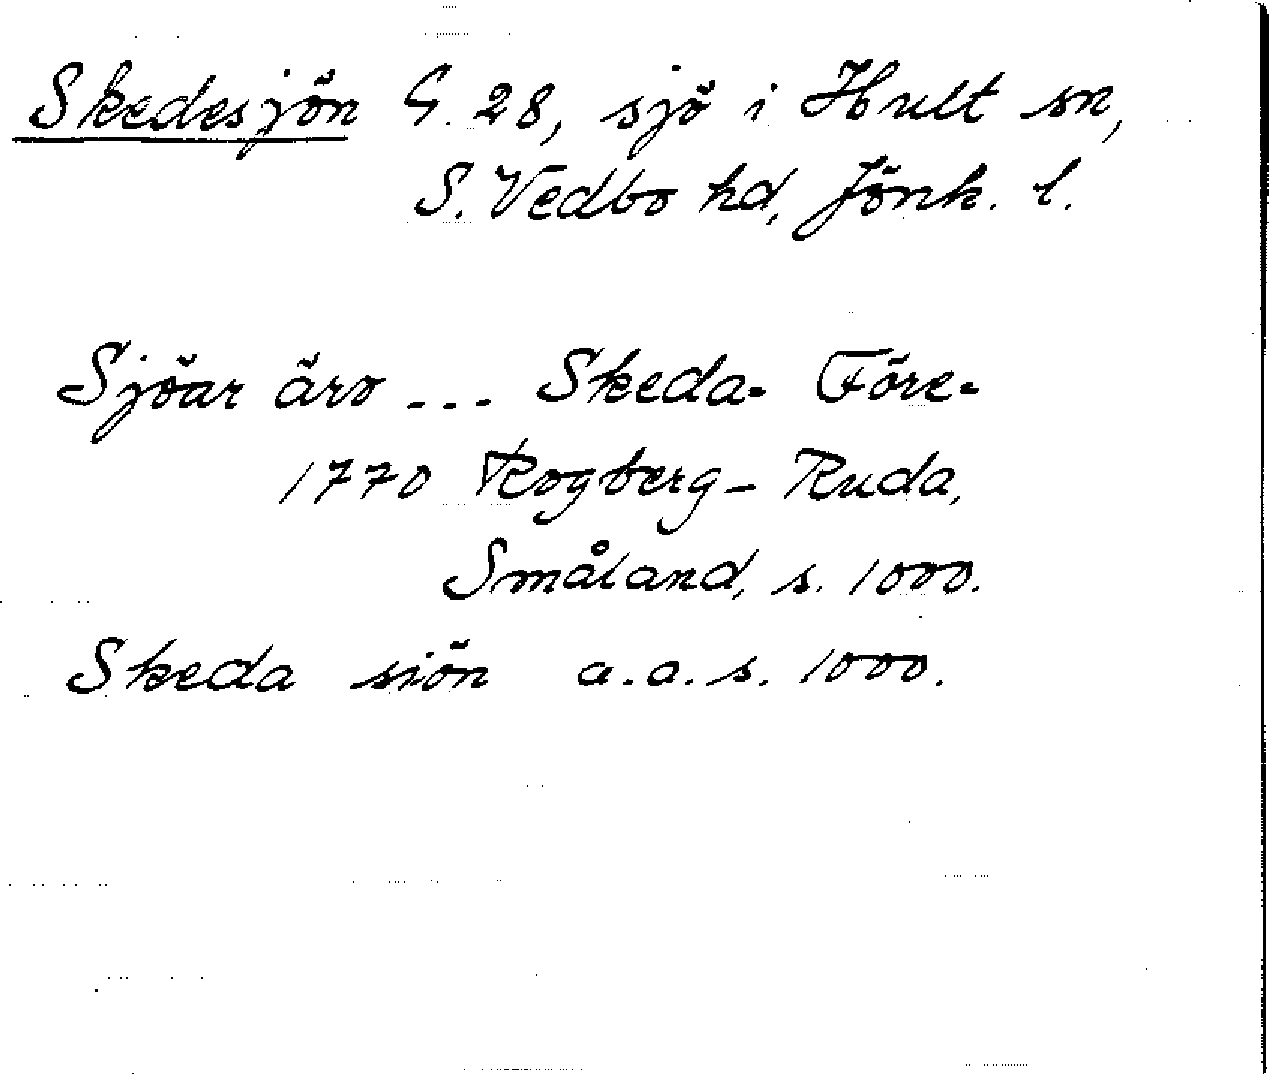 Skedesjön G. 28, sjö i Hult sn,
S. Vedbo hd, Jönk. l.
Sjöar äro ... Skeda- Före-
1770 Rogberg-Ruda,
Småland, s. 1000.
Skeda siön a.a.s. 1000.